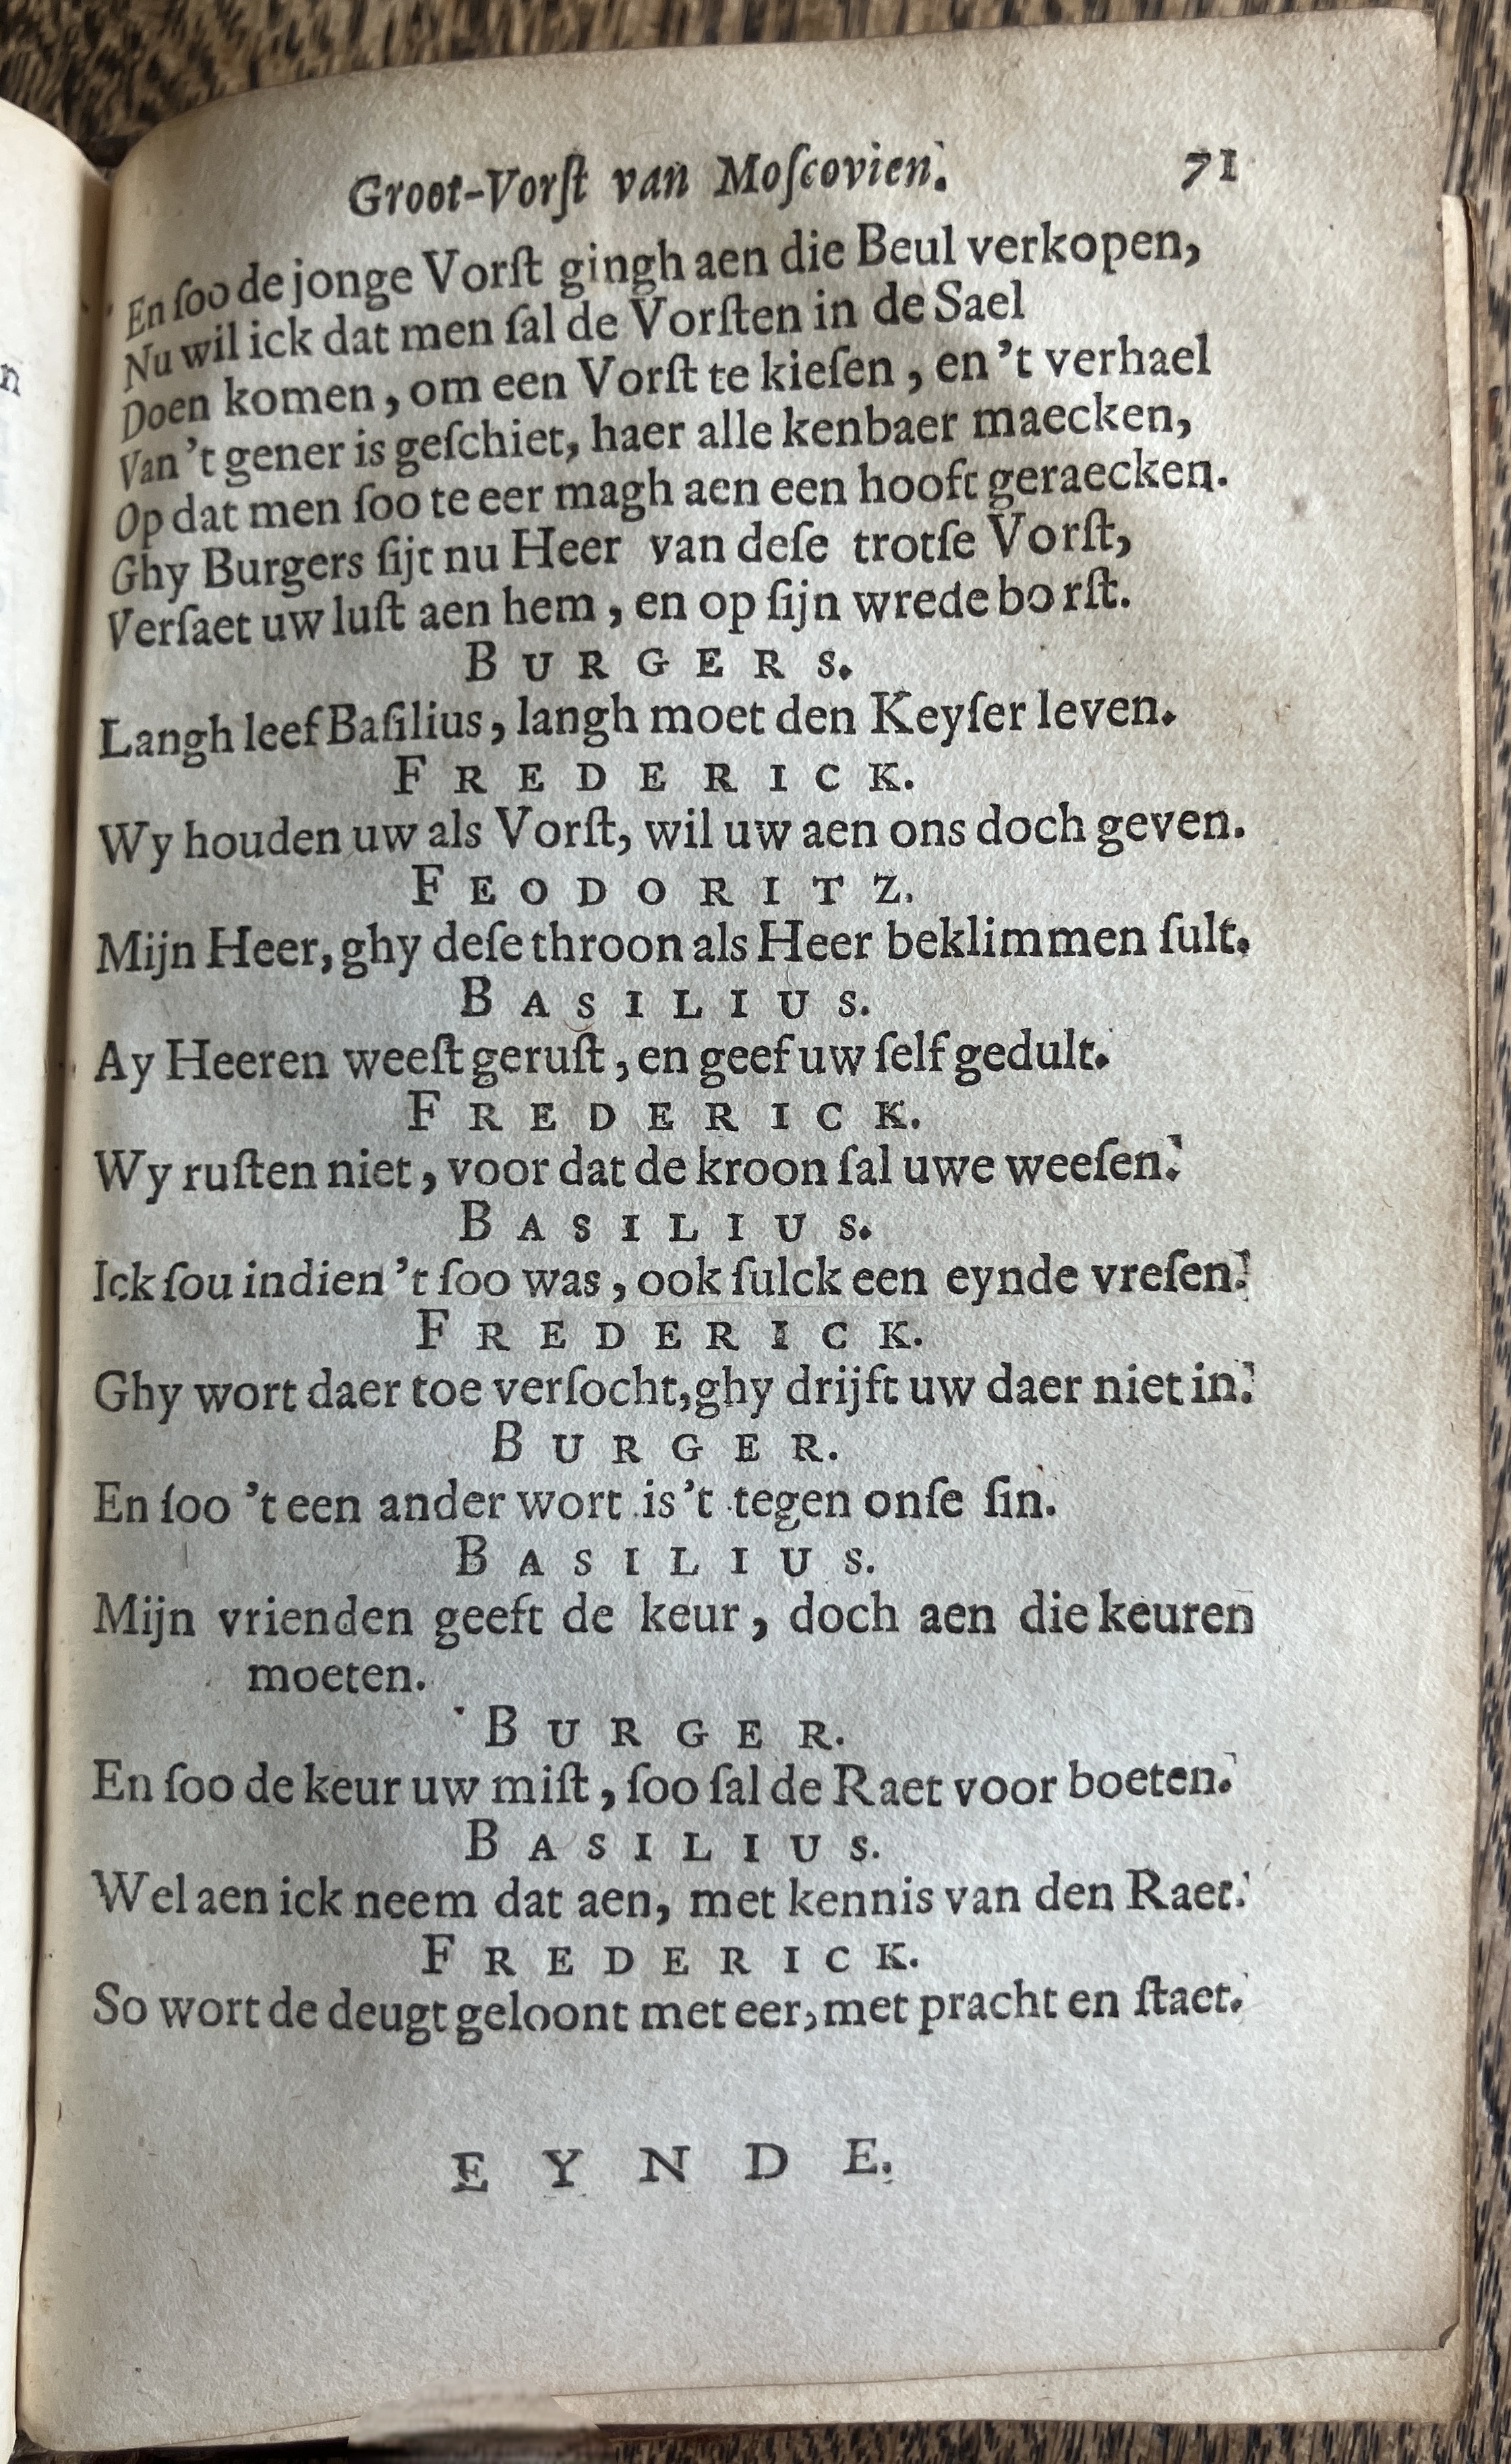 Groot-Vorſt van Moſcovien. 71
En ſoo de jonge Vorſt gingh aen die Beul verkopen,
Nu wil ick dat men ſal de Vorſten in de Sael
Doen komen, om een Vorſt te kieſen, en 't verhael
Van 't gener is geſchiet, haer alle kenbaer maecken,
Op dat men ſoo te eer magh aen een hooft geraecken.
Ghy Burgers ſijt nu Heer van deſe trotſe Vorſt,
Verſaet uw luſt aen hem, en op ſijn wrede borſt.
BURGERS.
Langh leef Baſilius, langh moet den Keyſer leven.
FREDERICK.
Wy houden uw als Vorſt, wil uw aen ons doch geven.
FEODORITZ.
Mijn Heer, ghy deſe throon als Heer beklimmen ſult.
BASILIUS.
Ay Heeren weeſt geruſt, en geef uw ſelf gedult.
FREDERICK.
Wy ruſten niet, voor dat de kroon ſal uwe weeſen.
BASILIUS.
Ick ſou indien 't ſoo was, ook ſulck een eynde vreſen.
FREDERICK.
Ghy wort daer toe verſocht, ghy drijft uw daer niet in.
BURGER.
En ſoo 't een ander wort is't tegen onſe ſin.
BASILIUS.
Mijn vrienden geeft de keur, doch aen die keuren
moeten.
BURGER.
En ſoo de keur uw miſt, ſoo ſal de Raet voor boeten.
BASILIUS.
Wel aen ick neem dat aen, met kennis van den Raet.
FREDERICK.
So wort de deugt geloont met eer, met pracht en ſtaet.
EYNDE.